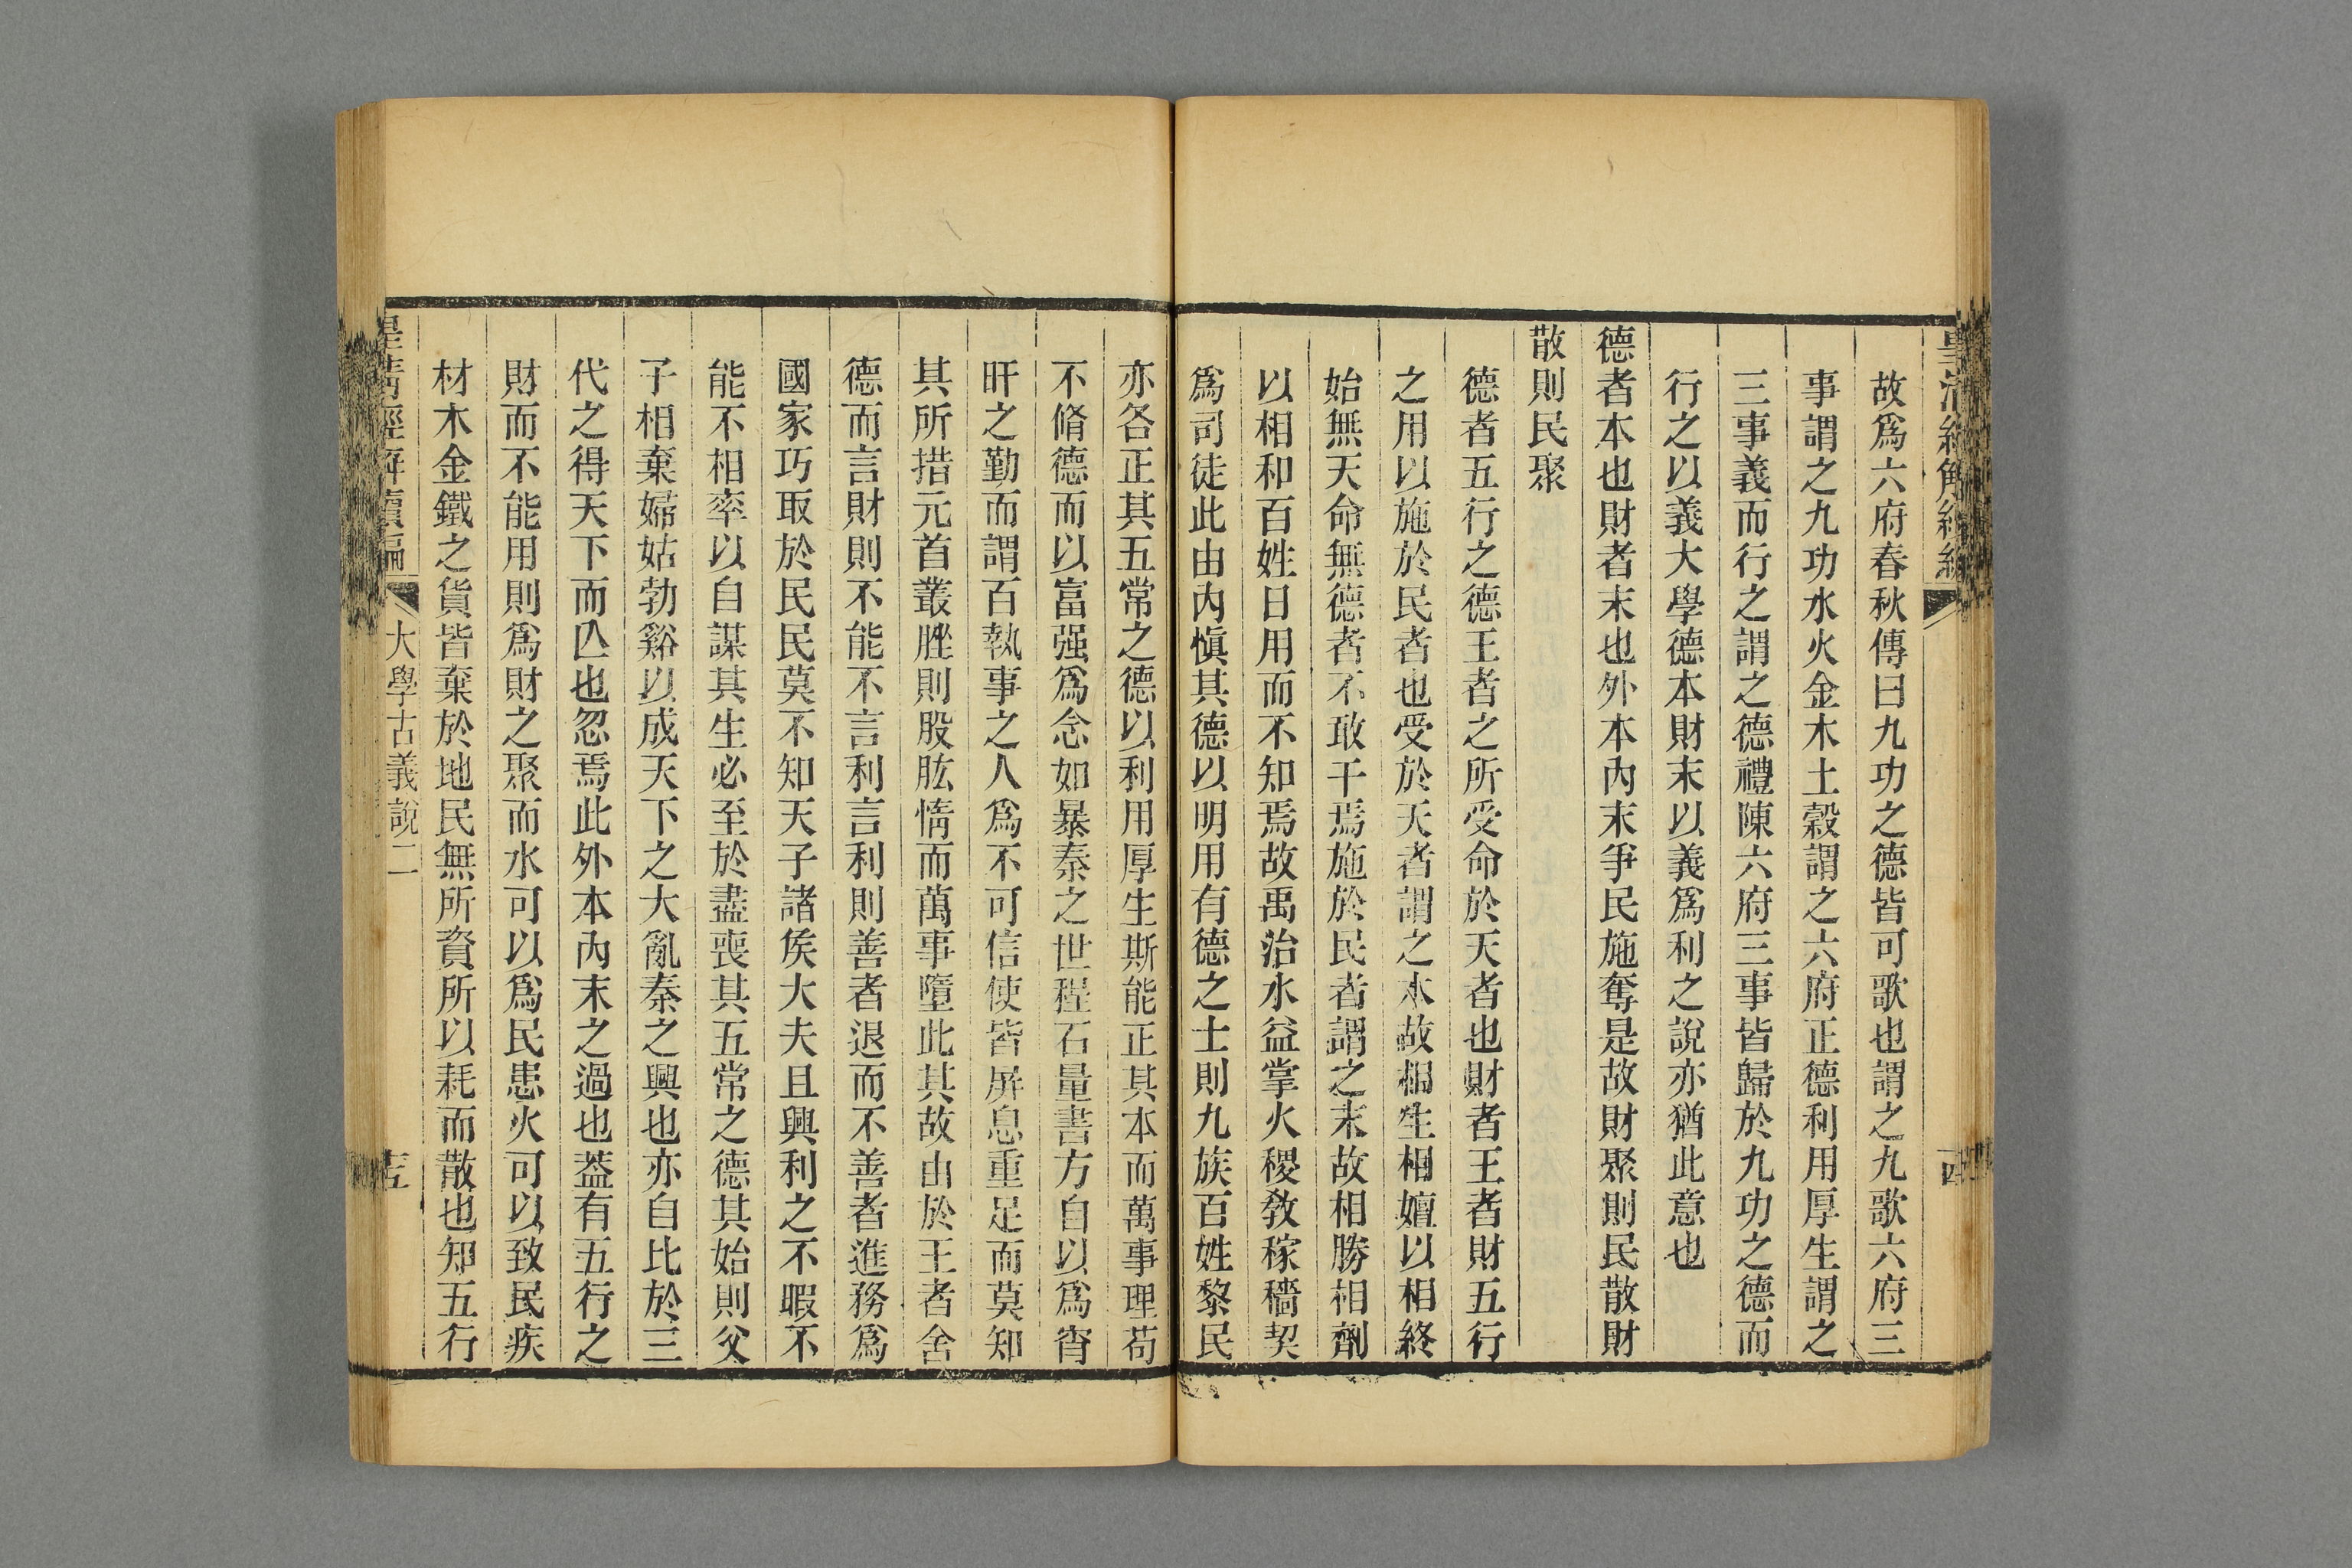 故爲六府春秋傳曰九功之德皆可歌也謂之九歌六府三
事謂之九功水火金木土穀謂之六府正德利用厚生謂之
三事義而行之謂之德禮陳六府三事皆歸於九功之德而
行之以義大學德本財末以義爲利之說亦猶此意也
德者本也財者末也外本內末爭民施奪是故財聚則民散財
散則民聚
德者五行之德王者之所受命於天者也財者王者財五行
之用以施於民者也受於天者謂之本故相生相嬗以相終
始無天命無德者不敢干焉施於民者謂之末故相勝相劑
以相和百姓日用而不知焉故禹治水益掌火稷敎稼穡契
爲司徒此由內愼其德以明用有德之士則九族百姓黎民
亦各正其五常之德以利用厚生斯能正其本而萬事理苟
不脩德而以富强爲念如暴秦之世程石量書方自以爲宵
旰之勤而謂百執事之人爲不可信使皆屏息重足而莫知
其所措元首叢脞則股肱惰而萬事墮此其故由於王者舍
德而言財則不能不言利言利則善者退而不善者進務爲
國家巧取於民民莫不知天子諸侯大夫且興利之不暇不
能不相率以自謀其生必至於盡喪其五常之德其始則父
子相棄婦姑勃谿以成天下之大亂秦之興也亦自比於三
代之得天下而亾也忽焉此外本內末之過也葢有五行之
財而不能用則爲財之聚而水可以爲民患火可以致民疾
材木金鐵之貨皆棄於地民無所資所以耗而散也知五行
大學古義說二